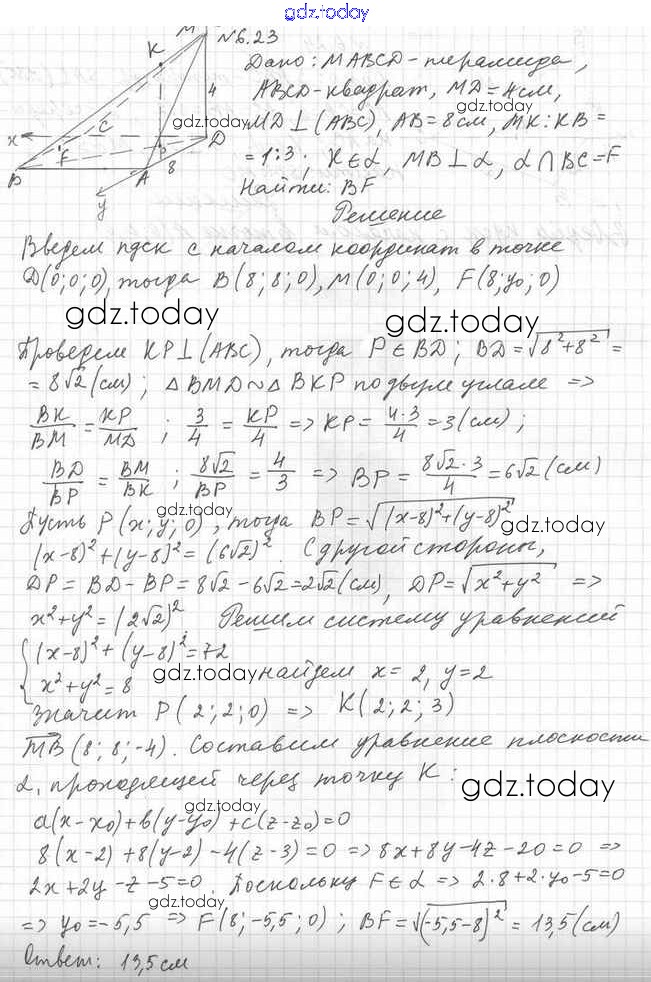 gdz.today
M
№6.23
K
Дано: MABCD-пирамида,
4
ABCD-квадрат, MD=4см,
gdz.today
gdz.today
MD⊥(ABC), AB=8см, MK:KB=
x C D
=1:3; K∈α, MB⊥α, α∩BC=F
F P
B A 8
Найти: BF
y
Решение
Введем пдск с началом координат в точке
D(0;0;0), тогда B(8;8;0), M(0;0;4), F(8;y₀;0)
gdz.today
gdz.today
Проведем KP⊥(ABC), тогда P∈BD; BD=√8²+8²=
=8√2(см); △BMD~△BKP по двум углам =>
BK/BM = KP/MD ; 3/4 = KP/4 => KP= 4·3/4 =3(см);
BD/BP = BM/BK ; 8√2/BP = 4/3 => BP= 8√2·3/4 =6√2(см)
gdz.today
gdz.today
Пусть P(x;y;0), тогда BP=√(x-8)²+(y-8)²
(x-8)²+(y-8)²=(6√2)². С другой стороны,
DP=BD-BP=8√2-6√2=2√2(см), DP=√x²+y² =>
x²+y²=(2√2)² Решим систему уравнений
{(x-8)²+(y-8)²=72
x²+y²=8
gdz.today
найдем x=2, y=2
Значит P(2;2;0) => K(2;2;3)
MB(8;8;-4). Составим уравнение плоскости
α, проходящей через точку K:
gdz.today
gdz.today
a(x-x₀)+b(y-y₀)+c(z-z₀)=0
8(x-2)+8(y-2)-4(z-3)=0 => 8x+8y-4z-20=0 =>
2x+2y-z-5=0. Поскольку F∈α => 2·8+2·y₀-5=0
gdz.today
gdz.today
=> y₀=-5,5 => F(8;-5,5;0); BF=√(-5,5-8)²=13,5(см)
Ответ: 13,5см